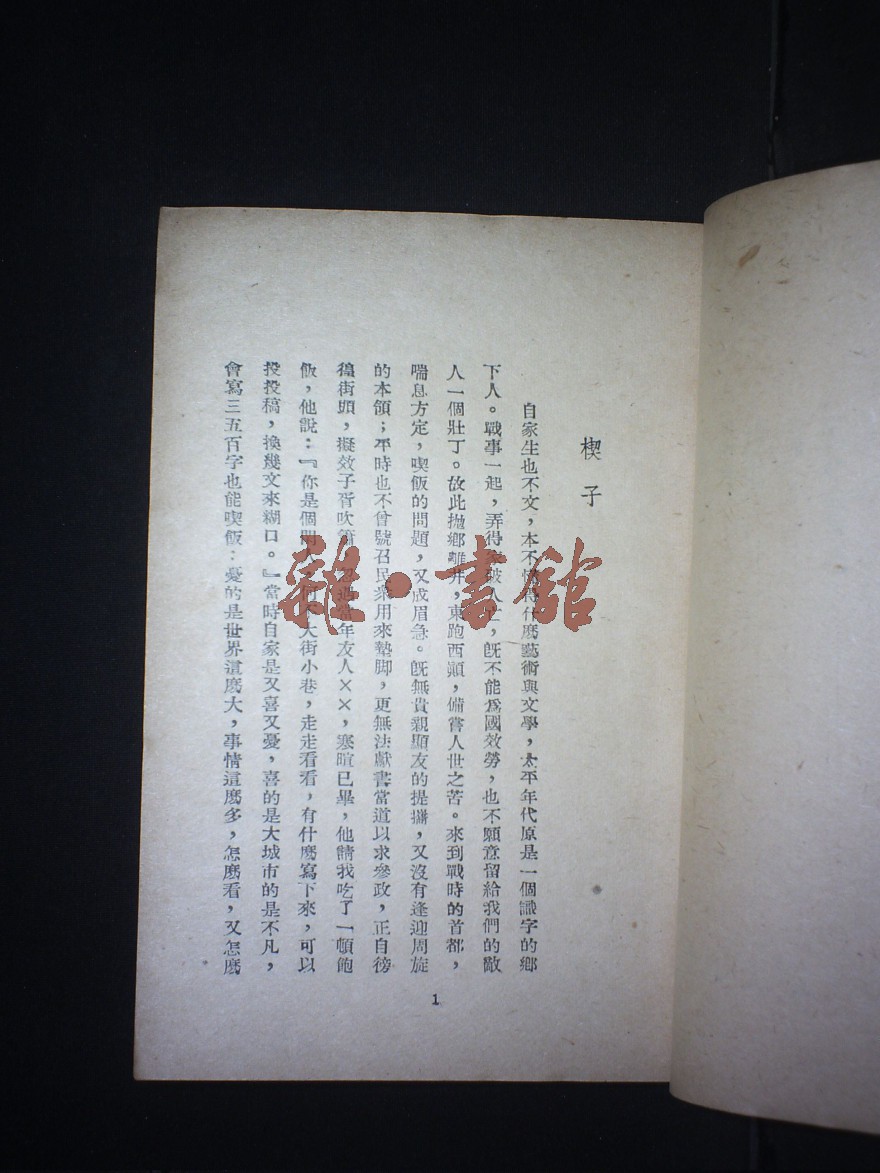 楔子
自家生也不文，本不什麽藝術與文學，太平年代原是一個識字的鄉
下人。戰事一起，弄得破人亡，旣不能爲國效勞，也不願意留給我們的敵
人一個壯丁。故此拋鄉離井，東跑西顚，備嘗人世之苦。來到戰時的首都，
喘息方定，喫飯的問題，又成眉急。旣無貴親顯友的提攜，又沒有逢迎周旋
的本領；平時也不曾號召民衆用來墊脚，更無法獻書當道以求參政，正自徬
徨街頭，擬效子胥吹簫，當年友人××，寒暄已畢，他請我吃了一頓飽
飯，他說：『你是個閒，何不大街小巷，走走看看，有什麽寫下來，可以
投投稿，換幾文來糊口。』當時自家是又喜又憂，喜的是大城市的是不凡，
會寫三五百字也能喫飯：憂的是世界這麽大，事情這麽多，怎麽看，又怎麽
1
雜·書館